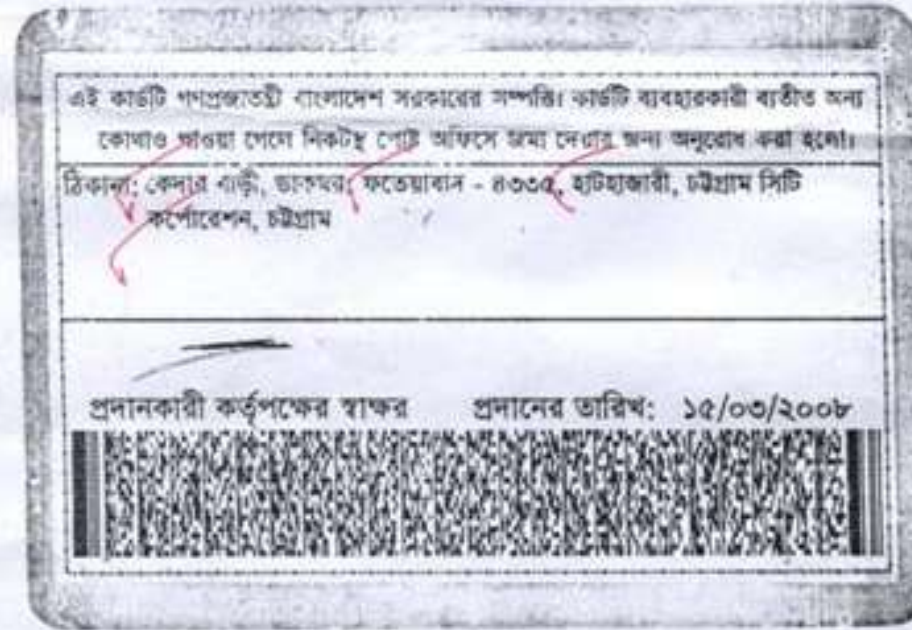 এই কার্ডটি গণপ্রজাতন্ত্রী বাংলাদেশ সরকারের সম্পত্তি। কার্ডটি ব্যবহারকারী ব্যতীত অন্য
কোথাও পাওয়া গেলে নিকটস্থ পোষ্ট অফিসে জমা দেবার জন্য অনুরোধ করা হলো।
ঠিকানা: কেদার বাড়ী, ডাকঘর: ফতেয়াবাদ - ৪৩৩৫, হাটহাজারী, চট্টগ্রাম সিটি
কর্পোরেশন, চট্টগ্রাম
প্রদানকারী কর্তৃপক্ষের স্বাক্ষর প্রদানের তারিখ: ১৫/০৩/২০০৮